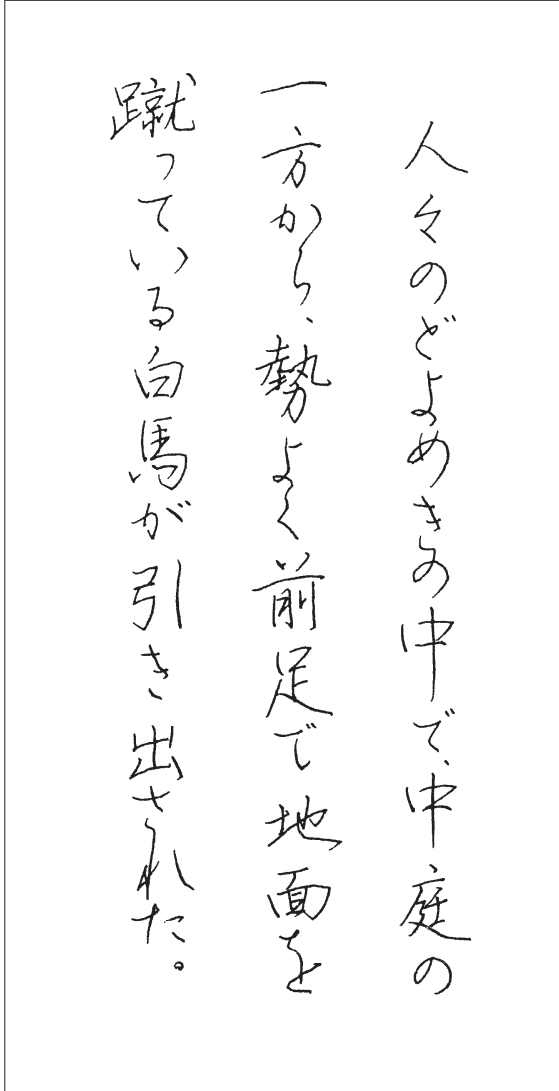 人々のどよめきの中で、中庭の
一方から、勢よく前足で地面を
蹴っている白馬が引き出された。